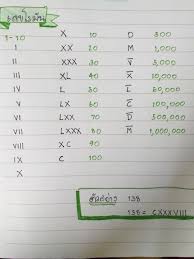 เลขโรมัน
1-10 X 10 D 500
I XX 20 M 1,000
II XXX 30 V̅ 5,000
III XL 40 X̅ 10,000
IV L 50 L̅ 50,000
V LX 60 C̅ 100,000
VI LXX 70 D̅ 500,000
VII LXXX 80 M̅ 1,000,000
VIII XC 90
IX C 100
X
ตัวอย่าง 138
138 = CXXXVIII